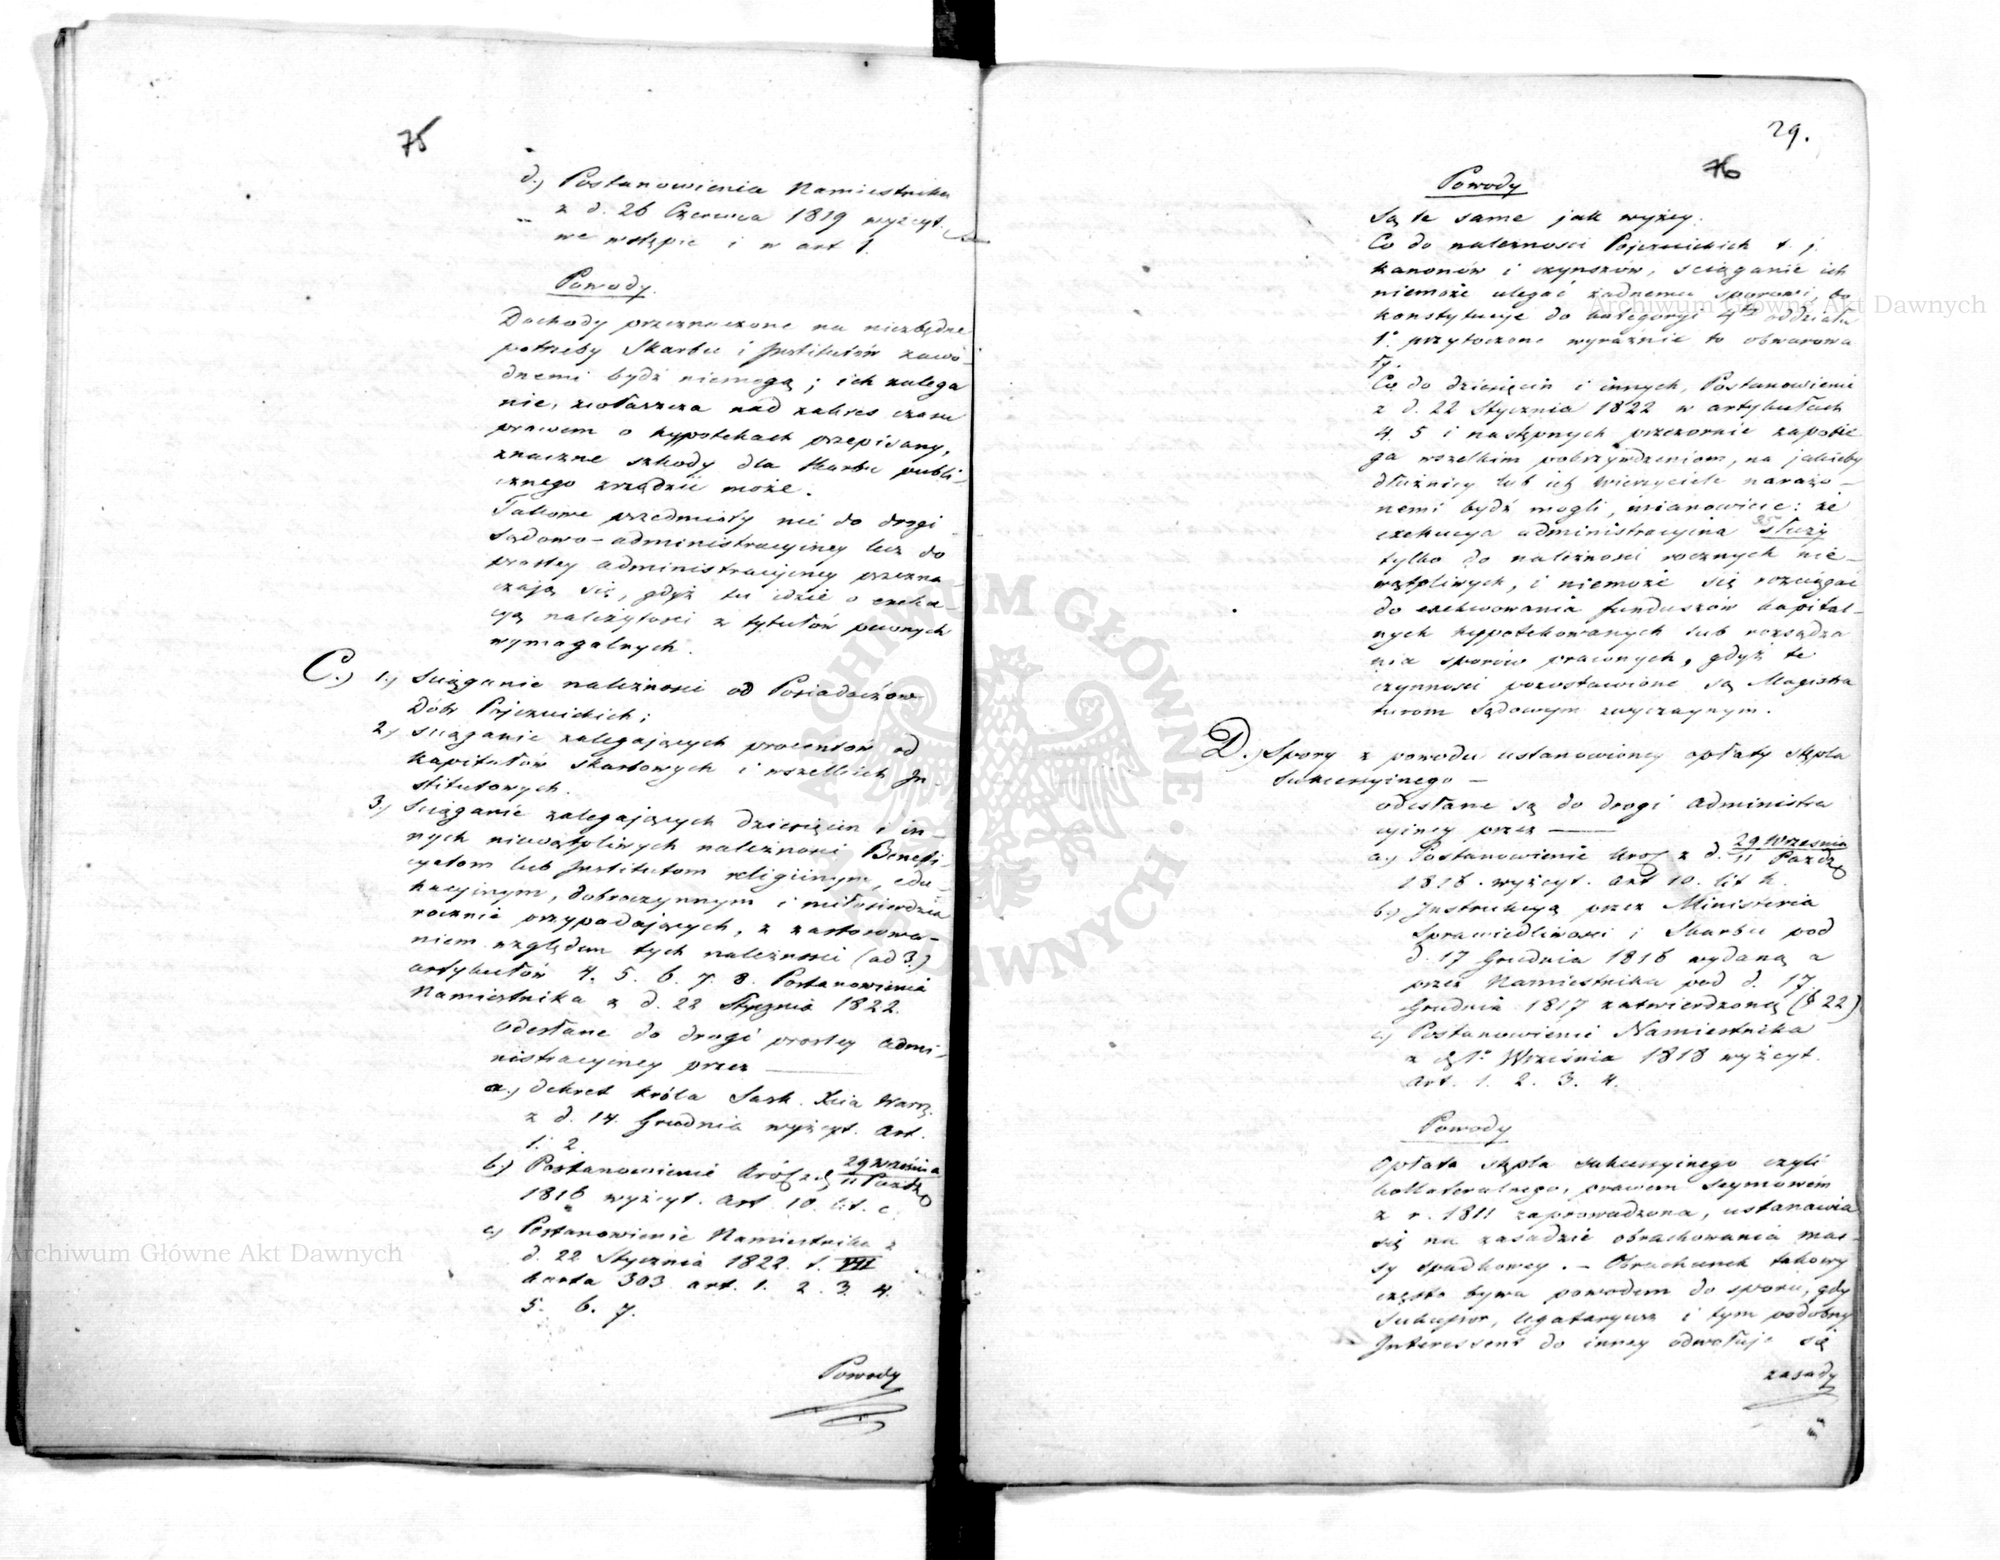 75
d.) Postanowienia Namiestnika
z d. 26 Czerwca 1819 wyżcyt.
we wstępie i w art 1.
Powody.
Dochody przeznaczone na niezbędne
potrzeby Skarbu i Institutów zawo-
dnemi bydź niemogą; ich zalega
nie, zwłaszcza nad zakres czasu
prawem o hypotekach przepisany,
znaczne szkody dla Skarbu publi-
cznego zrządzić może.
Takowe przedmioty nie do drogi
Sądowo-administracyiney lecz do
prostey administracyiney przezna-
czają się, gdyż tu idzie o exeku-
cyą należytości z tytułów pewnych
wymagalnych.
C.) 1.) Sciąganie należności od Posiadaczów
Dóbr Pojezuickich;
2.) sciąganie zalegających procentów od
kapitałów skarbowych i wszelkich In-
stitutowych.
3.) Sciąganie zalegających dziesięcin i in-
nych niewątpliwych należności Benefi-
cyatom lub Institutom religiinym, edu-
kacyinym, dobroczynnym i miłosierdzia
rocznie przypadających, z zastosowa-
niem względem tych należności (ad 3.)
artykułów 4. 5. 6. 7. 8. Postanowienia
Namiestnika z d. 22 Stycznia 1822.
Odesłane do drogi prostey admi-
nistracyiney przez
a.) Dekret Króla Sask. Xcia Warsz.
z d. 14. Grudnia wyżcyt. Art.
1. 2.
b.) Postanowienie Król z d. 29 września
11 Paźdz
1816 wyżcyt. Art. 10. lit. c.
c.) Postanowienie Namiestnika z
d. 22 Stycznia 1822. t. VII
karta 303. art. 1. 2. 3. 4.
5. 6. 7.
Powody
29.
76
Powody
Są te same jak wyżey.
Co do należności Pojezuickich t. j.
kanonów i czynszów, sciąganie ich
niemoże ulegać żadnemu sporowi, bo
konstytucye do kategoryi 4tey oddziału
1o przytoczone wyraźnie to obwarowa
ły.
Co do dziesięcin i innych, Postanowienie
z d. 22 Stycznia 1822 w artykułach
4. 5 i następnych przezornie zapobie
ga wszelkim pokrzywdzeniom, na jakieby
dłużnicy lub ich wierzyciele narażo-
nemi bydź mogli, mianowicie: że
exekucya administracyina służy
tylko do należności rocznych nie-
wątpliwych, i niemoże się rozciągać
do exekwowania funduszów kapital-
nych hypotekowanych lub rozsądza
nia sporów prawnych, gdyż te
czynności pozostawione są Magistra
turom Sądowym zwyczaynym.
D.) Spory z powodu ustanowioney opłaty stępla
sukcessyinego —
odesłane są do drogi administra
cyiney przez
a.) Postanowienie Król z d. 29 Września
11 Paźdz
1816. wyżcyt. art 10. lit h.
b.) Instrukcyą przez Ministeria
Sprawiedliwości i Skarbu pod
d. 17 Grudnia 1816 wydaną a
przez Namiestnika pod d. 17.
Grudnia 1817 zatwierdzoną (§ 22)
c.) Postanowienie Namiestnika
z d. 1o Września 1818 wyżcyt.
art. 1. 2. 3. 4.
Powody
Opłata stępla sukcessyinego czyli
kollateralnego, prawem Seymowem
z r. 1811 zaprowadzona, ustanawia
się na zasadzie obrachowania mas-
sy spadkowey. — Obrachunek takowy
często bywa powodem do sporu, gdy
Sukcessor, legataryusz i tym podobny
Interessent do inney odwołuje się
zasady
Archiwum Główne Akt Dawnych
Archiwum Główne Akt Dawnych
ARCHIWUM GŁÓWNE AKT DAWNYCH